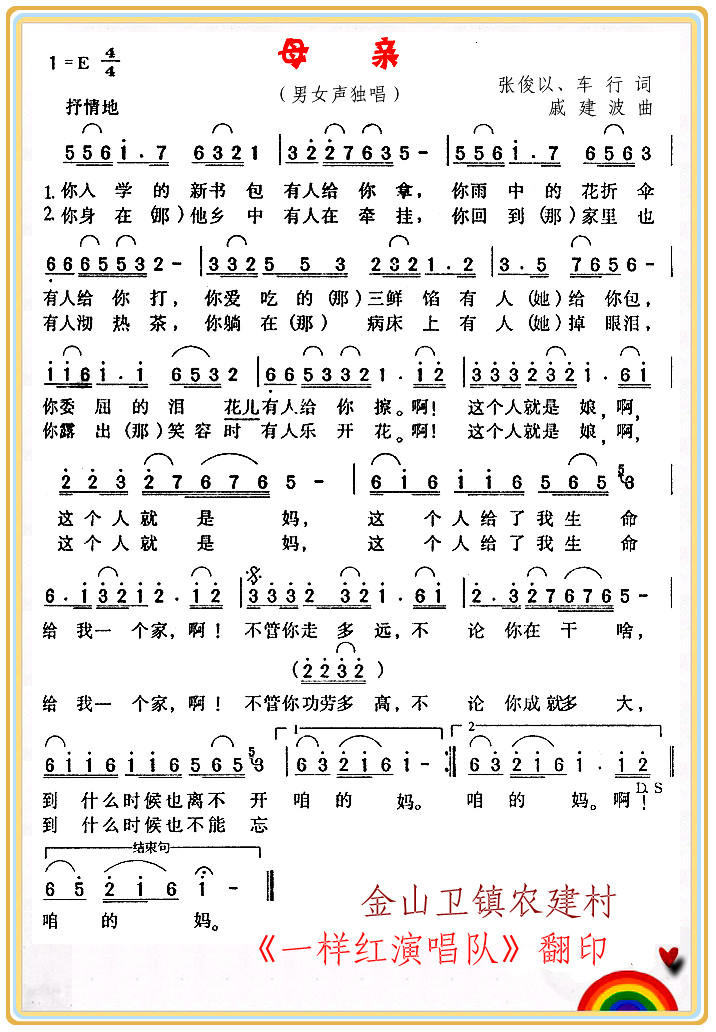 母 亲
1=E 4/4
（男女声独唱）
张俊以、车 行 词
抒情地
戚 建 波 曲
5 5 6 1 . 7 6 3 2 1 | 3 2 2 7 6 3 5 - | 5 5 6 1 . 7 6 5 6 3 |
1. 你入 学 的 新 书 包 有人 给 你 拿， 你雨 中 的 花 折 伞
2. 你身 在（那）他 乡 中 有人 在 牵 挂， 你回 到（那）家 里 也
6 6 6 5 5 3 2 - | 3 3 2 5 5 3 2 3 2 1 . 2 | 3 . 5 7 6 5 6 - |
有人 给 你 打， 你爱 吃 的（那）三鲜 馅 有 人（她）给 你 包，
有人 沏 热 茶， 你躺 在（那） 病床 上 有 人（她）掉 眼 泪，
1 1 6 1 . 1 6 5 3 2 | 6 6 5 3 3 2 1 . 1 2 | 3 3 3 2 3 2 1 . 6 1 |
你委 屈 的 泪 花儿 有 人 给 你 擦。啊！ 这个人就是 娘，啊，
你露 出（那）笑 容 时 有 人 乐 开 花。啊！ 这个人就是 娘，啊，
2 2 3 2 7 6 7 6 5 - | 6 1 6 1 6 5 6 5 3
这 个 人 就 是 妈， 这 个 人 给 了 我 生 命
这 个 人 就 是 妈， 这 个 人 给 了 我 生 命
6 . 1 3 2 1 2 . 1 2 | 3 3 3 2 3 2 1 . 6 1 | 2 . 3 2 7 6 7 6 5 - |
给 我 一 个 家，啊！ 不管你走 多 远，不 论 你在 干 啥，
( 2 2 3 2 )
给 我 一 个 家，啊！ 不管你功劳多 高，不 论 你成就多 大，
1
2
6 1 1 6 1 1 6 5 6 5 3 | 6 3 2 1 6 1 - :| 6 3 2 1 6 1 . 1 2 ‖
到 什么时候也离不 开 咱 的 妈。 咱 的 妈。啊！
D.S
到 什么时候也不能 忘
结束句
6 5 2 1 6 1 - ‖
咱 的 妈。
金山卫镇农建村
《一样红演唱队》翻印